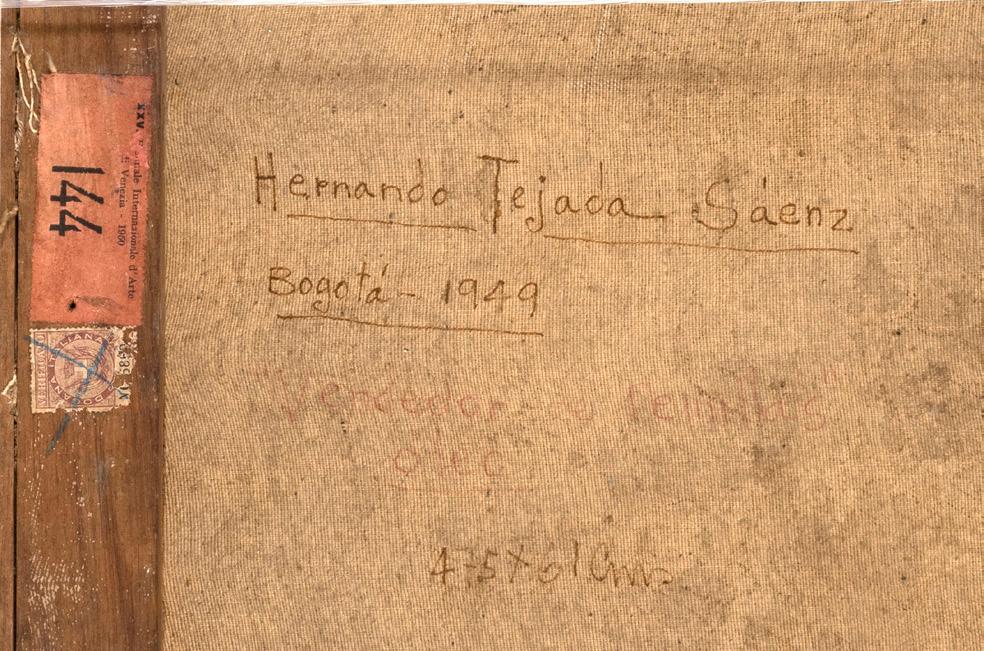 XXV. Internazionale d'Arte
Venezia - 1960
144
DOGANA ITALIANA
Hernando Tejada Sáenz
Bogotá - 1949
"Vendedor de
oleo
45 x 61 Cms.